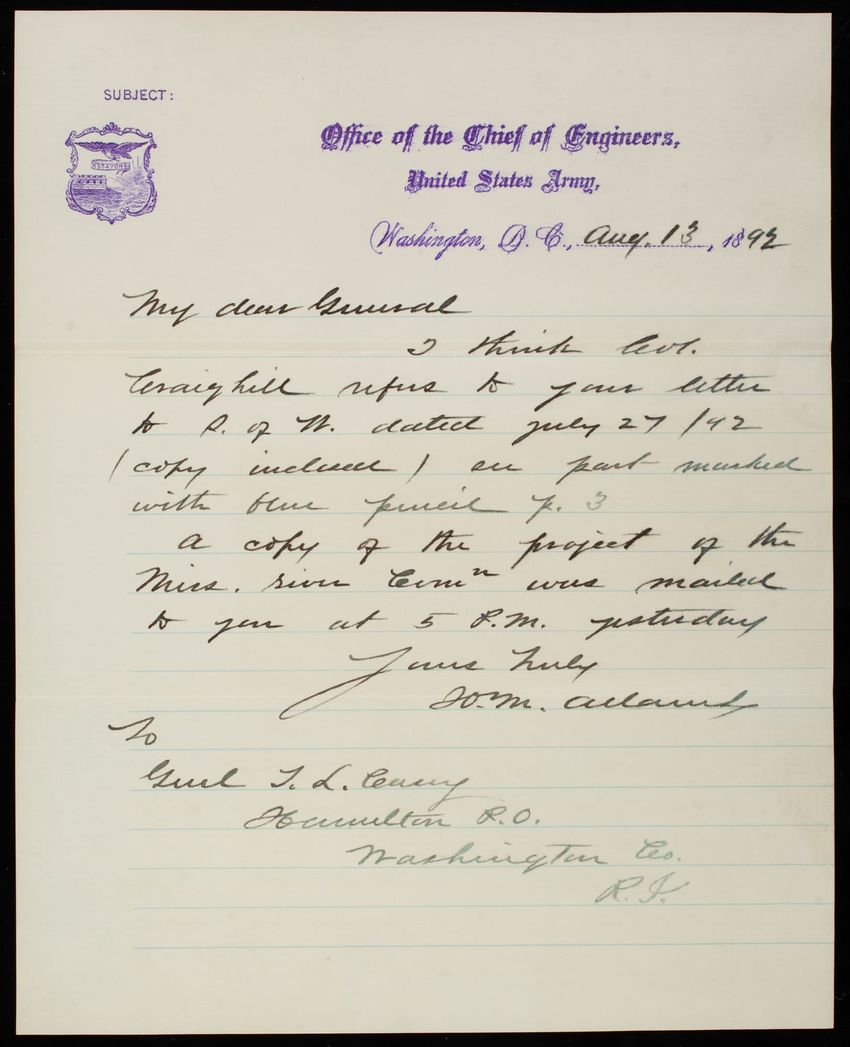 SUBJECT:
ESSAYONS
Office of the Chief of Engineers,
United States Army,
Washington, D. C., Aug. 13, 1892
My dear General
I think Col.
Craighill refers to your letter
to S. of W. dated July 27/92
(copy inclosed) on part marked
with blue pencil p. 3
A copy of the project of the
Miss. River Comn was mailed
to you at 5 P.M. yesterday
Yours truly
H. M. Adams
To
Genl T. L. Casey
Hamilton P.O.
Washington Co.
R.I.